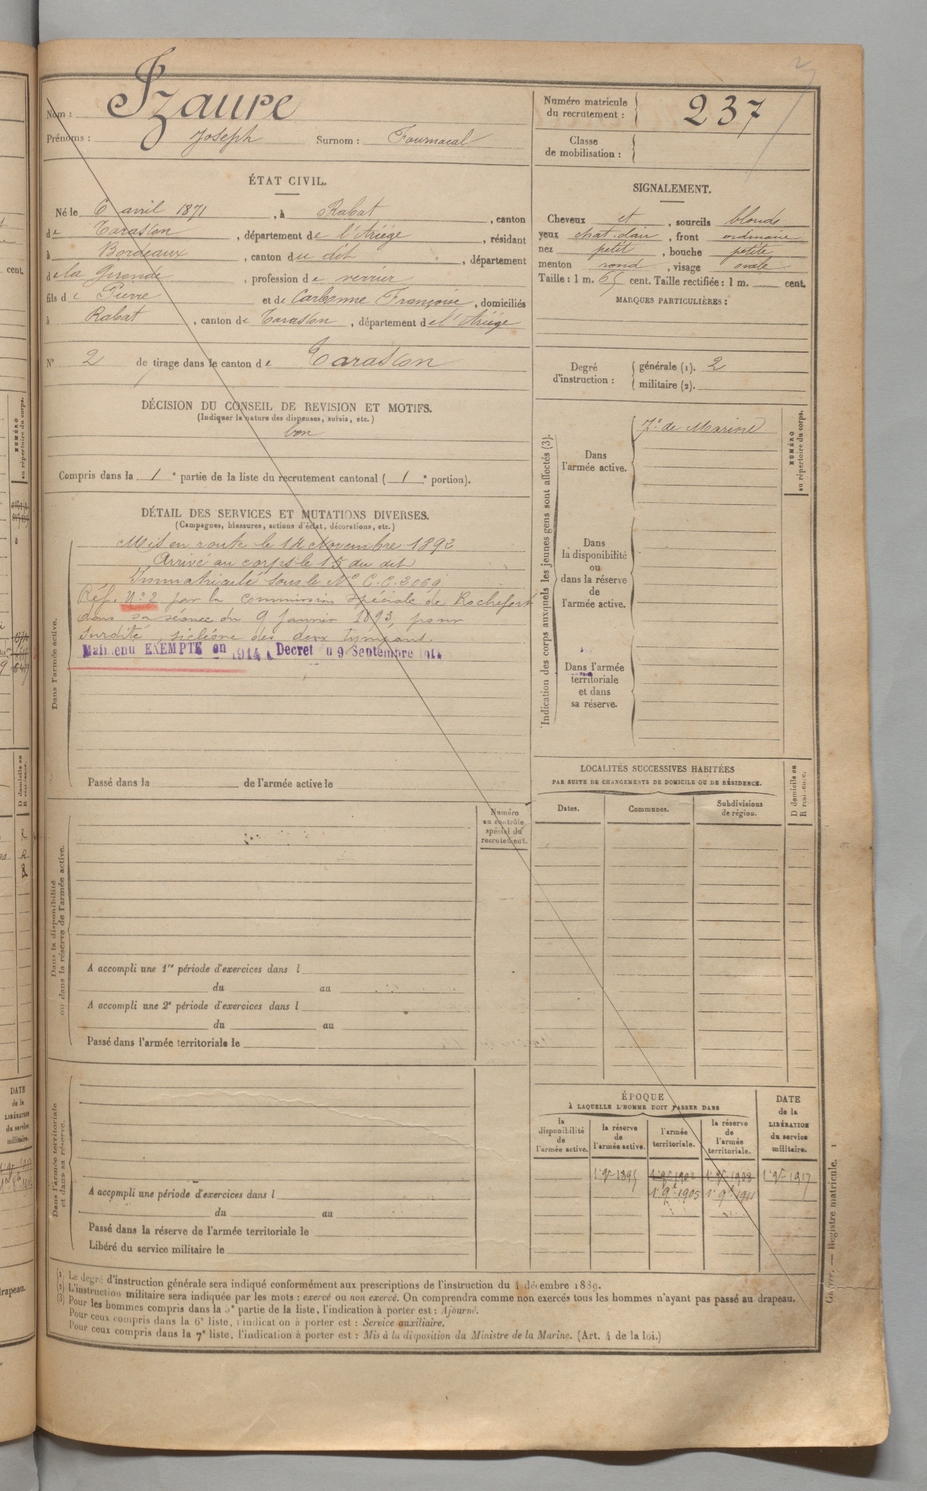 Nom : Izaure
Prénoms : Joseph Surnom : Fournacal
Numéro matricule du recrutement : 237
Classe de mobilisation :
ÉTAT CIVIL.
Né le 6 avril 1871, à Rabat, canton
de Tarascon, département de l'Ariège, résidant
à Bordeaux, canton du dit, département
de la Gironde, profession de verrier
fils de Pierre et de Carbonne Françoise, domiciliés
à Rabat, canton de Tarascon, département de l'Ariège
N° 2 de tirage dans le canton de Tarascon
DÉCISION DU CONSEIL DE REVISION ET MOTIFS.
(Indiquer la nature des dispenses, sursis, etc.)
bon
Compris dans la 1e partie de la liste du recrutement cantonal (1e portion).
DÉTAIL DES SERVICES ET MUTATIONS DIVERSES.
(Campagnes, blessures, actions d'éclat, décorations, etc.)
Mis en route le 14 Novembre 1892
Arrivé au corps le 15 du dit
Immatriculé sous le N° C.C. 3069
Réf. N° 2 par la commission spéciale de Rochefort
dans sa séance du 9 Janvier 1893, pour
surdité, des deux tympans.
Maintenu EXEMPTÉ en 1914 Décret du 9 Septembre 1914
Dans l'armée active.
Passé dans la de l'armée active le
Numéro au contrôle spécial du recrutement.
Dans la disponibilité ou dans la réserve de l'armée active.
A accompli une 1re période d'exercices dans l
du au
A accompli une 2e période d'exercices dans l
du au
Passé dans l'armée territoriale le
Dans l'armée territoriale et dans sa réserve.
A accompli une période d'exercices dans l
du au
Passé dans la réserve de l'armée territoriale le
Libéré du service militaire le
SIGNALEMENT.
Cheveux et, sourcils blonds
yeux chat. clair, front ordinaire
nez petit, bouche petite
menton rond, visage ovale
Taille : 1 m. 65 cent. Taille rectifiée : 1 m. cent.
MARQUES PARTICULIÈRES :
Degré d'instruction : générale (1). 2
militaire (2).
Indication des corps auxquels les jeunes gens sont affectés (3).
Dans l'armée active. 7e de Marine
NUMÉRO au répertoire du corps.
Dans la disponibilité ou dans la réserve de l'armée active.
Dans l'armée territoriale et dans sa réserve.
LOCALITÉS SUCCESSIVES HABITÉES
PAR SUITE DE CHANGEMENTS DE DOMICILE OU DE RÉSIDENCE.
Dates. Communes. Subdivisions de région. D domicile ou R résidence.
ÉPOQUE
À LAQUELLE L'HOMME DOIT PASSER DANS
la disponibilité de l'armée active. la réserve de l'armée active. l'armée territoriale. la réserve de l'armée territoriale. DATE de la LIBÉRATION du service militaire.
1er 9bre 1895 1er 9bre 1902 1er 9bre 1908 1er 9bre 1917
1er 9bre 1905 1er 9bre 1911
(1) Le degré d'instruction générale sera indiqué conformément aux prescriptions de l'instruction du 4 décembre 1889.
(2) L'instruction militaire sera indiquée par les mots : exercé ou non exercé. On comprendra comme non exercés tous les hommes n'ayant pas passé au drapeau.
(3) Pour les hommes compris dans la 5e partie de la liste, l'indication à porter est : Ajourné.
Pour ceux compris dans la 6e liste, l'indication à porter est : Service auxiliaire.
Pour ceux compris dans la 7e liste, l'indication à porter est : Mis à la disposition du Ministre de la Marine. (Art. 4 de la loi.)
Registre matricule.